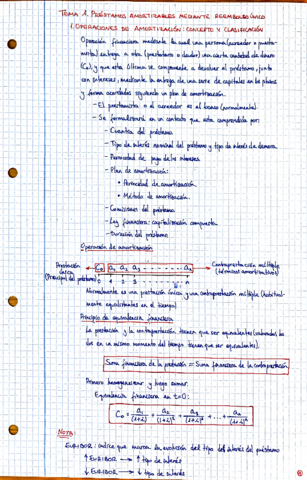 TEMA 1. PRÉSTAMOS AMORTIZABLES MEDIANTE REEMBOLSO ÚNICO
1. OPERACIONES DE AMORTIZACIÓN: CONCEPTO Y CLASIFICACIÓN
Operación financiera mediante la cual una persona (acreedor o presta-
mista) entrega a otra (prestatario o deudor) una cierta cantidad de dinero
(C₀) y que esta última se compromete a devolver el préstamo, junto
con intereses, mediante la entrega de una serie de capitales en los plazos
y forma acordados siguiendo un plan de amortización.
- El prestamista o el acreedor es al banco (normalmente)
- Se formalizará en un contrato que esta comprendido por:
- Cuantía del préstamo
- Tipo de interés nominal del préstamo y tipo de interés de demora
- Periodicidad de pago de los intereses
- Plan de amortización:
• Periodicidad de amortización
• Método de amortización
- Comisiones del préstamo
- Ley financiera: capitalización compuesta
- Duración del préstamo
Operación de amortización
Prestación única (Principal del préstamo)
C₀ a₁ a₂ a₃ - - - - - - - aₙ
0 1 2 3 - - - - - - - n
Contraprestación múltiple (términos amortizativos)
Normalmente es una prestación única y una contraprestación múltiple (habitual-
mente equidistantes en el tiempo)
Principio de equivalencia financiera
La prestación y la contraprestación tienen que ser equivalentes (valorados los
dos en un mismo momento del tiempo tienen que ser equivalentes).
Suma financiera de la prestación = Suma financiera de la contraprestación
Primero homogeneizar y luego sumar.
Equivalencia financiera en t=0:
C₀ = a₁/(1+i) + a₂/(1+i)² + a₃/(1+i)³ + ... + aₙ/(1+i)ⁿ
NOTA:
EURIBOR: índice que marca la evolución del tipo del interés del préstamo
↑ EURIBOR → ↑ tipo de interés
↓ EURIBOR → ↓ tipo de interés